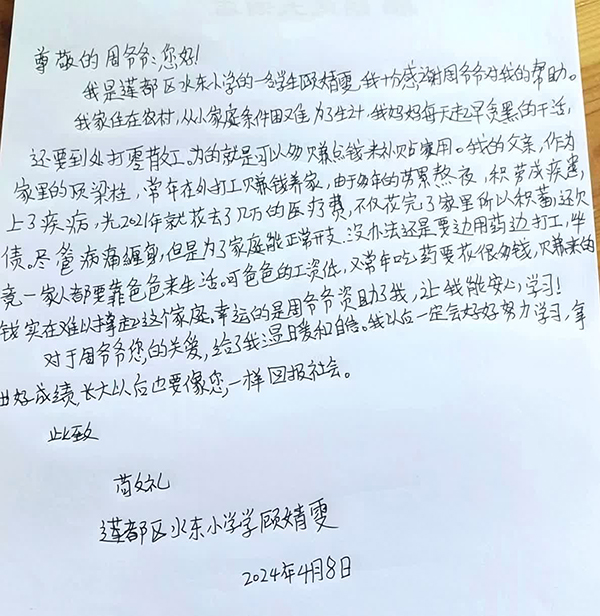 尊敬的周爷爷:您好!
我是莲都区水东小学的一名学生顾婧雯,我十分感谢周爷爷对我的帮助。
我家住在农村,从小家庭条件困难,为了生计,我妈妈每天起早贪黑的干活,
还要到处打零散工。为的就是可以多赚点钱来补贴家用。我的父亲,作为
家里的顶梁柱,常年在外打工赚钱养家,由于多年的劳累熬夜,积劳成疾患
上了疾病,光2021年就花去了几万的医疗费,不仅花完了家里所以积蓄还欠
债。尽管病痛缠身,但是为了家庭能正常开支,没办法还是要边用药边打工,毕
竟一家人都要靠爸爸来生活。可爸爸的工资低,又常年吃药要花很多钱,赚来的
钱实在难以撑起这个家庭。幸运的是周爷爷资助了我,让我能安心学习!
对于周爷爷您的关爱,给了我温暖和自信。我以后一定会好好努力学习,拿
出好成绩,长大以后也要像您一样回报社会。
此致
敬礼
莲都区水东小学学顾婧雯
2024年4月8日